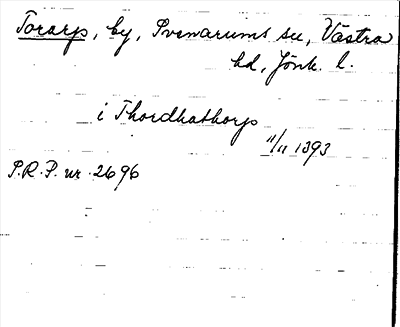 Torarp, by, Svenarums sn, Västra
hd, Jönk. l.
i Thordhathorp
11/11 1393
S.R.P. nr 2696